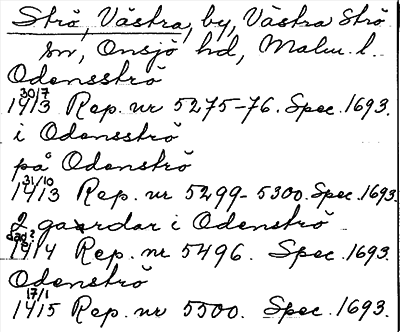 Strö, Västra, by, Västra Strö
sn, Onsjö hd, Malm. l.
Odensströ
1413 30/7 Rep. nr 5275-76. Spec. 1693.
i Odensströ
på Odenströ
1413 31/10 Rep. nr 5299-5300. Spec. 1693.
2 gaardar i Odenströ
1414 dag? Rep. nr 5496. Spec. 1693.
Odenströ
1415 17/1 Rep. nr 5500. Spec. 1693.